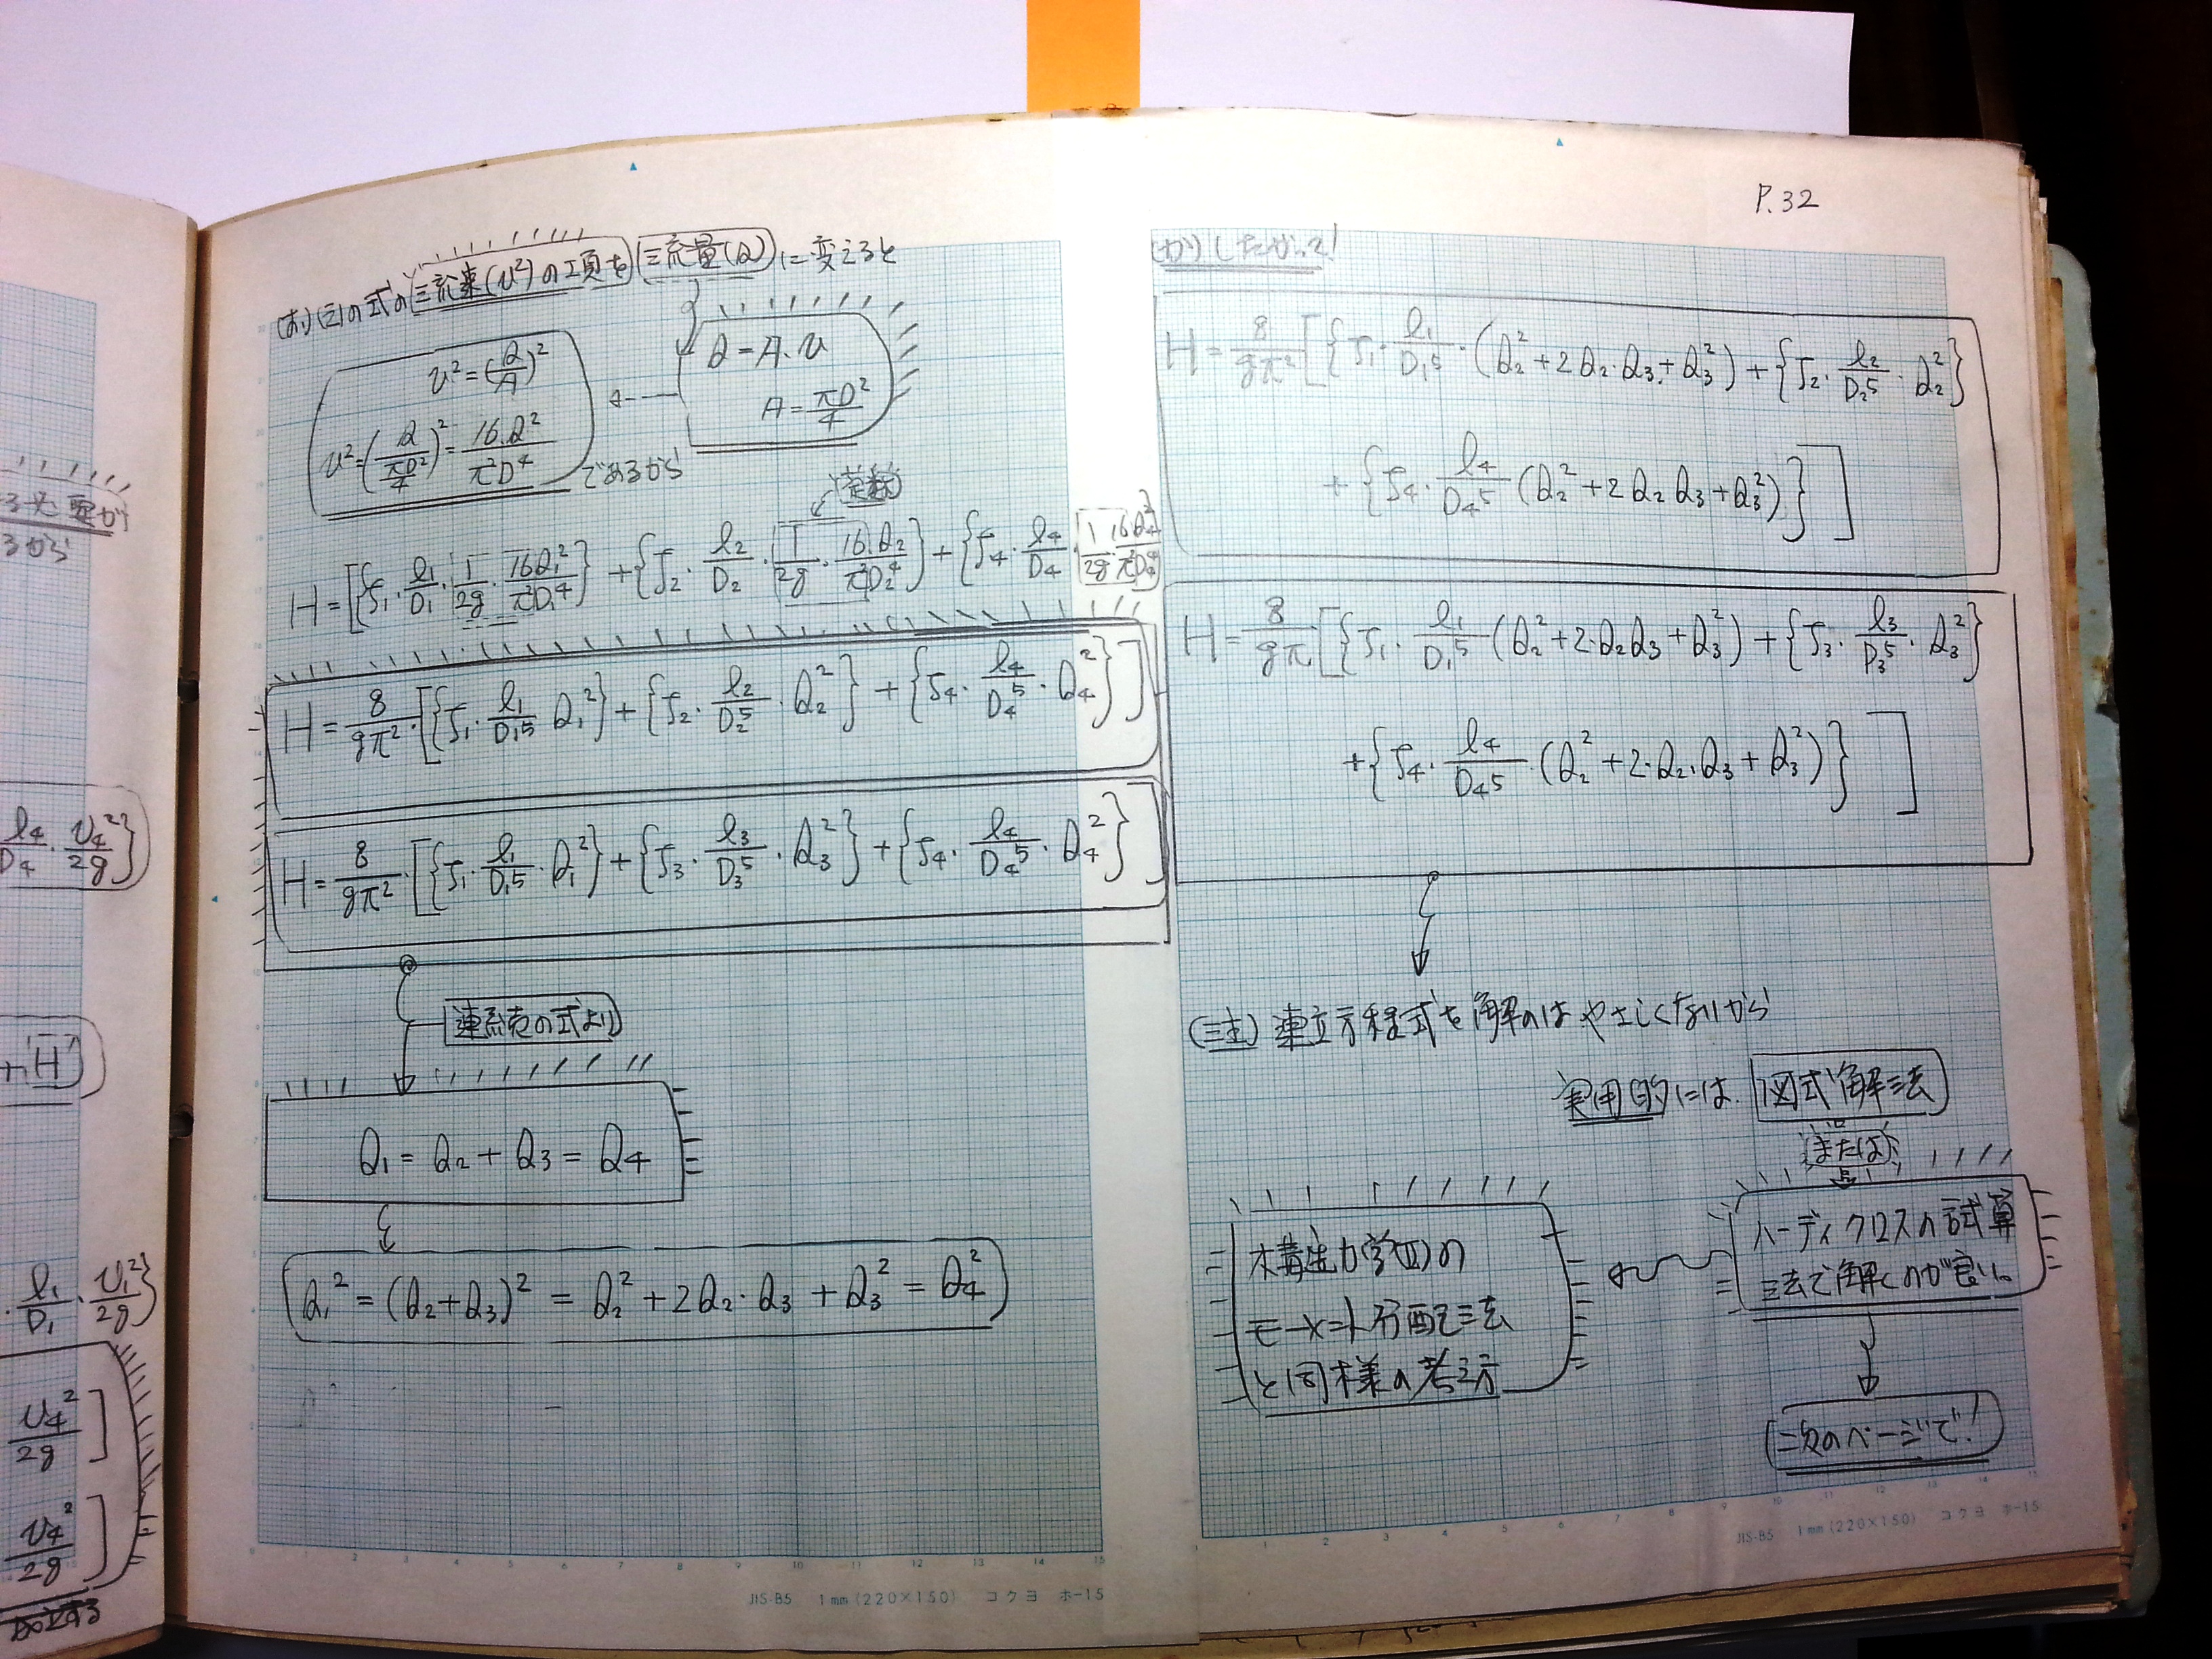 P.32
(お)(え)の式の流速(v²)の項を流量(Q)に変えると
v²=(Q/A)²
v²=(Q/(πD²/4))²=16Q²/π²D⁴
であるから
Q=A·v
A=πD²/4
定数
H=[{f₁·l₁/D₁·1/2g·16Q₁²/π²D₁⁴}+{f₂·l₂/D₂·1/2g·16Q₂/π²D₂⁴}+{f₄·l₄/D₄·1/2g·16Q₄²/π²D₄⁴}
H=8/gπ²·[{f₁·l₁/D₁5 Q₁²}+{f₂·l₂/D₂⁵·Q₂²}+{f₄·l₄/D₄⁵·Q₄²}]
H=8/gπ²·[{f₁·l₁/D₁5·Q₁²}+{f₃·l₃/D₃⁵·Q₃²}+{f₄·l₄/D₄⁵·Q₄²}]
連続の式より
Q₁=Q₂+Q₃=Q₄
Q₁²=(Q₂+Q₃)²=Q₂²+2Q₂·Q₃+Q₃²=Q₄²
JIS-B5 1mm(220×150) コクヨ ホ-15
(か)したがって!
H=8/gπ²[{f₁·l₁/D₁5·(Q₂²+2Q₂·Q₃+Q₃²)+{f₂·l₂/D₂5·Q₂²}
+{f₄·l₄/D₄5(Q₂²+2Q₂Q₃+Q₃²)}]
H=8/gπ[{f₁·l₁/D₁5(Q₂²+2·Q₂Q₃+Q₃²)+{f₃·l₃/D₃5·Q₃²}
+{f₄·l₄/D₄5·(Q₂²+2·Q₂·Q₃+Q₃²)}]
(注)連立方程式を解のはやさしくないから
実用的には図式解法
または
ハーディクロスの試算
法で解くのが良い。
構造力学(II)の
モーメント分配法
と同様の考え方
(次のページで!)
JIS-B5 1mm(220×150) コクヨ ホ-15
l₄/D₄·v₄²/2g}
+H)
l₁/D₁·v₁²/2g}
v₄²/2g]
v₄²/2g]